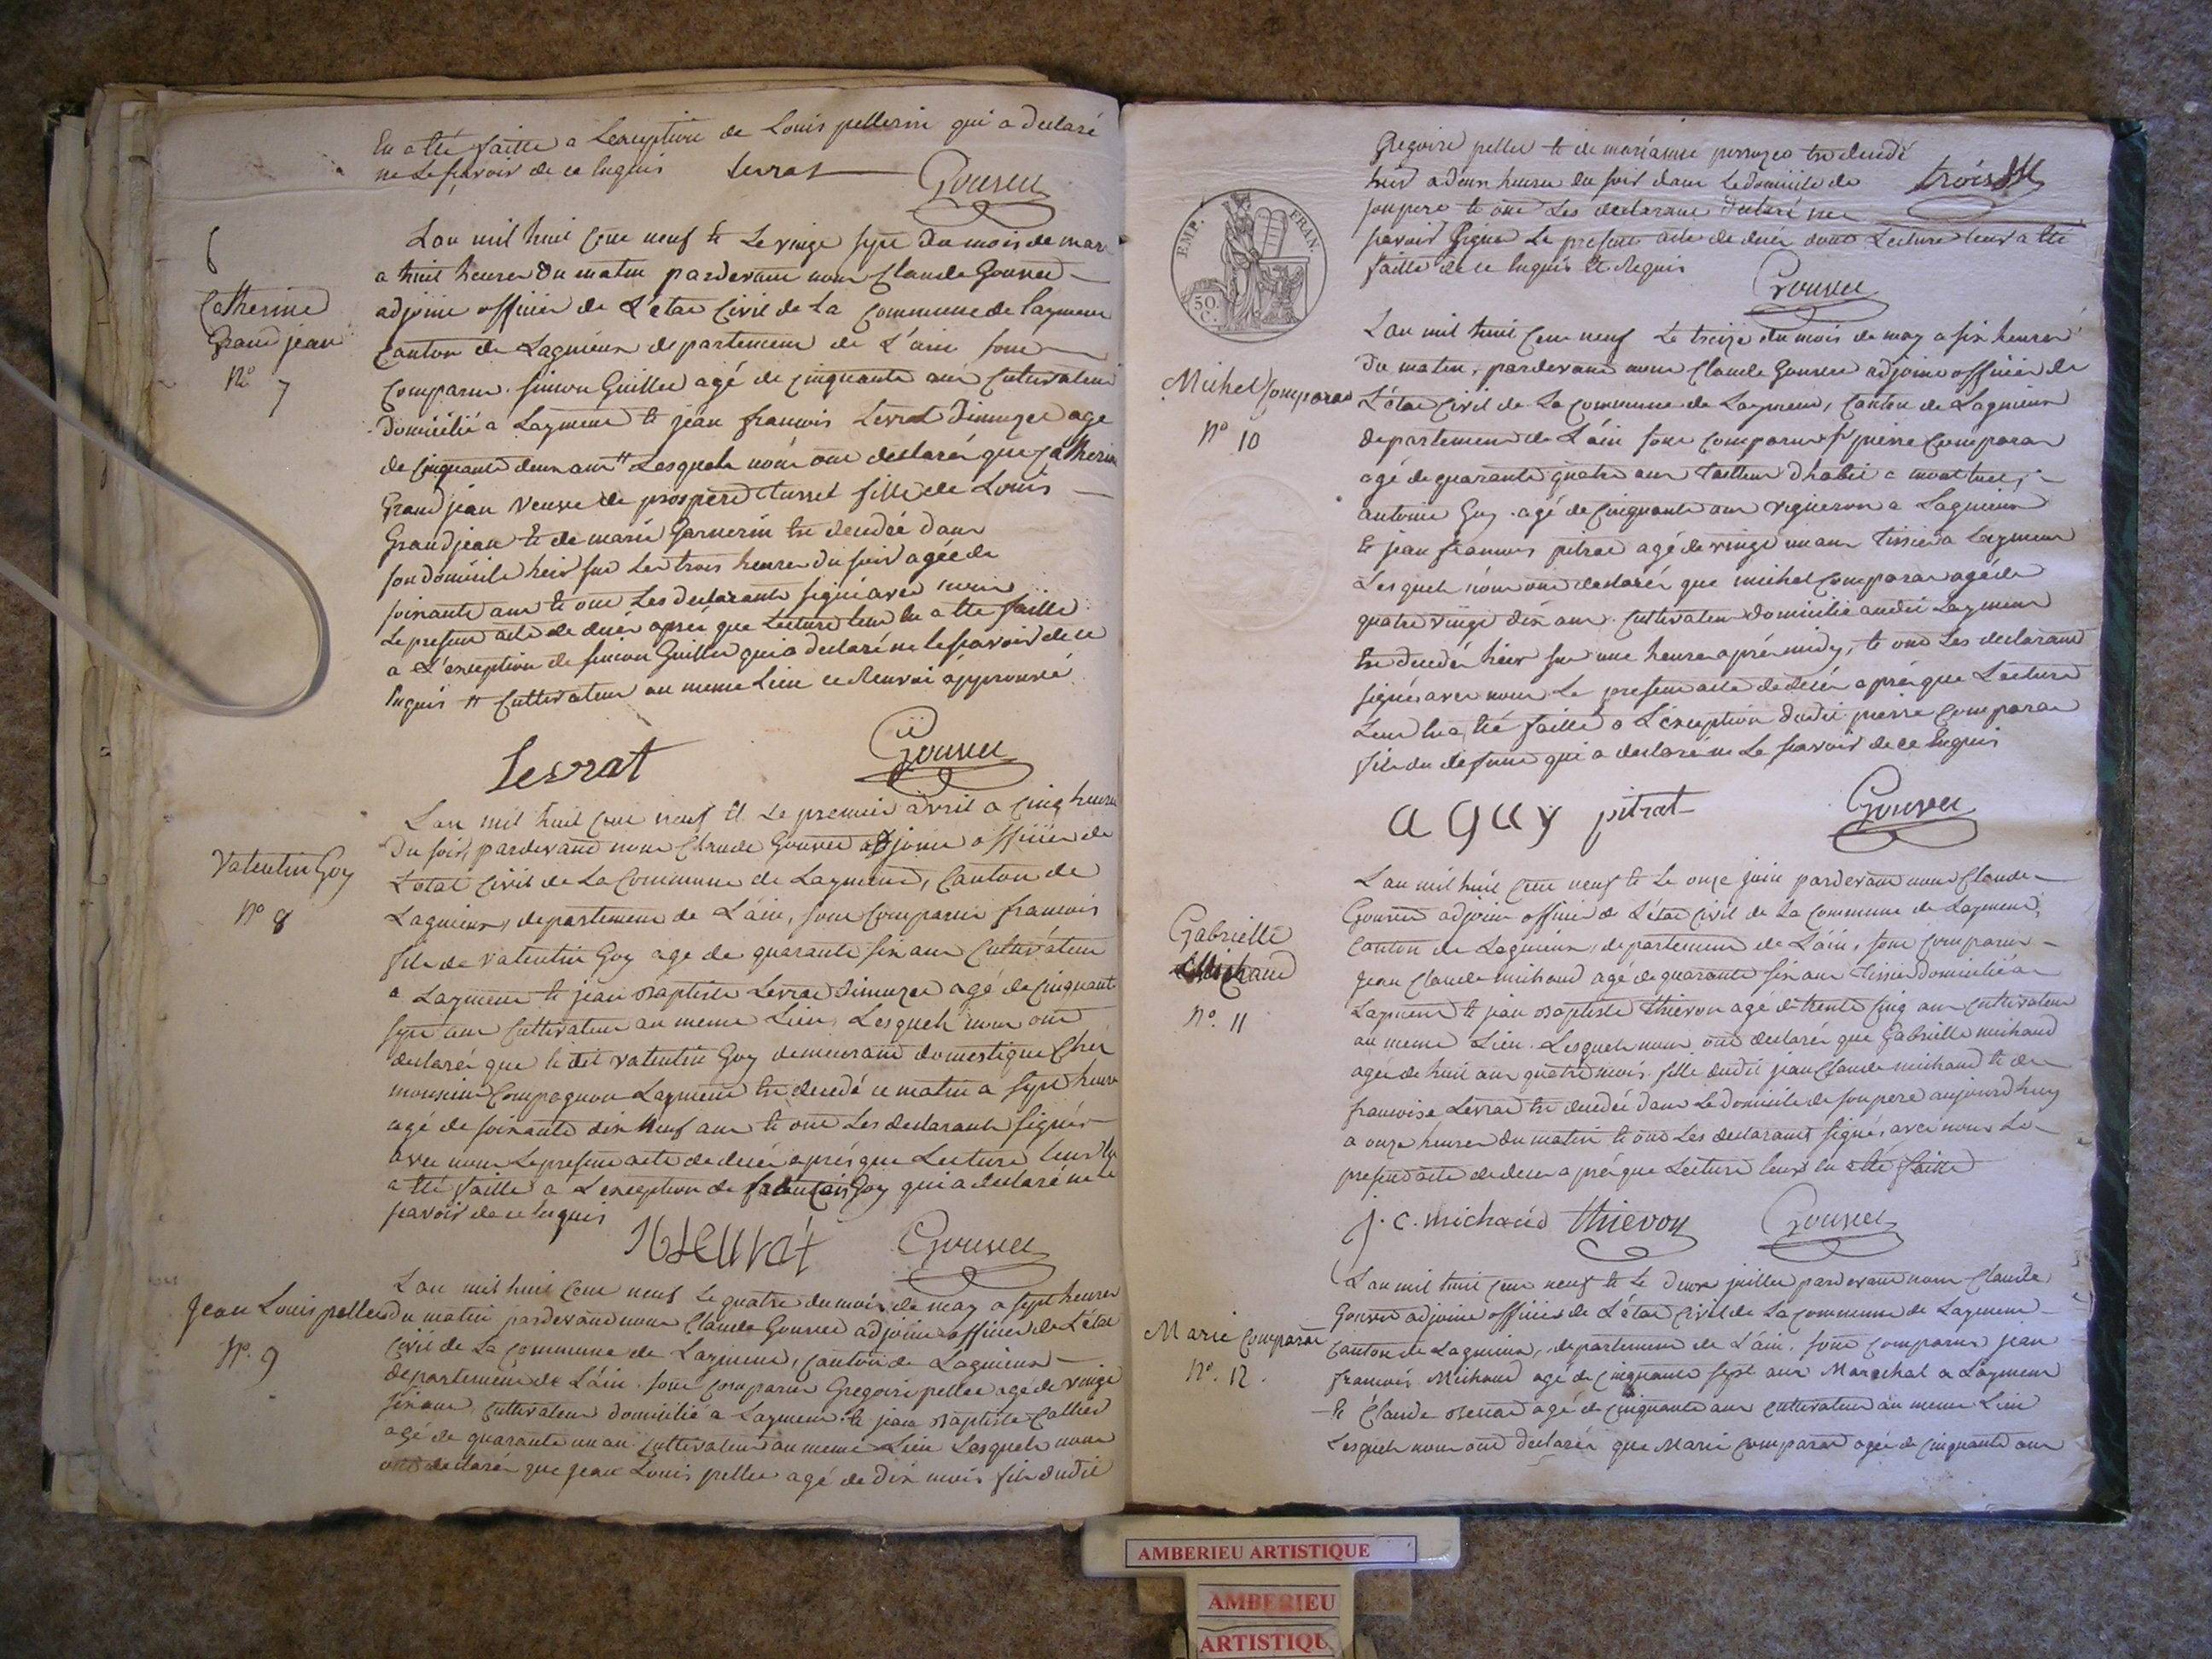 lu a été faitte a Lexception de Louis pellerin qui a declaré
ne le scavoir de ce Enquis Levrat
Gouvet
6
Catherine
Grandjean
N° 7
L'an mil huit cent neuf & Le vingt sept du mois de mar
a huit heures du matin pardevant nous Claude Gouvet
adjoint officier de L'état Civil de La Commune de Laymens
Canton de Lagnieux departement de L'ain sont
Comparus Simon Guillet agé de cinquante ans Cultivateur
domicilié a Laymens & jean francois Levrat Dimuzet agé
de cinquante deux ans # Lesquels nous ont declarés que Catherin
Grandjean veuve de prospere tussel fille de Louis
Grandjean & de marie Garnerin est decedée dans
son domicile hier sur Les trois heures du soir agée de
soixante ans & ont Les declarants signé avec nous
Le present acte de décés aprés que Lecture leur lu a été faitte
a L'exception de simon Guillet qui a declaré ne le scavoir de ce
Enquis # Cultivateur au meme Lieu ce Renvoi approuvé
Levrat Gouvet
Valentin Goy
N° 8
L'an mil huit cent neuf & Le premier avril a cinq heures
du soir, pardevant nous Claude Gouvet adjoint officier de
L'état Civil de La Commune de Laymens, Canton de
Lagnieux, departement de L'ain, sont Comparus francois
fils de Valentin Goy agé de quarante six ans Cultivateur
a Laymens & jean Baptiste Levrat Dimuzet agé de cinquante
sept ans Cultivateur au meme Lieu, Lesquels nous ont
declarés que le dit Valentin Goy demeurant domestique Chez
monsieur Compagnon Laymens est decedé ce matin a sept heures
agé de soixante dix neuf ans & ont Les declarants signés
avec nous Le present acte de decés aprés que Lecture leur lu
a été faitte a L'exception de francois Goy qui a declaré ne le
scavoir de ce Enquis
Gouvet
Jean Louis pellet
N° 9
L'an mil huit cent neuf Le quatre du mois de may a sept heures
du matin pardevant nous Claude Gouvet adjoint officier de L'état
Civil de La Commune de Laymens, Canton de Lagnieux
departement de L'ain sont comparus Gregoire pellet agé de vingt
six ans, Cultivateur domicilié a Laymens & jean Baptiste Collier
agé de quarante un an Cultivateur au meme Lieu Lesquels nous
ont declarés que jean Louis pellet agé de dix mois fils dudit
Gregoire pellet & de mariamne est decedé
hier a deux heures du soir dans Le domicile de
son pere & ont Les declarant declaré ne
scavoir signer Le present acte de décés dont Lecture leur a été
faitte de ce Enquis & Requis
Gouvet
EMP. FRAN.
50 C.
Michel Comparat
N° 10
L'an mil huit cent neuf Le treize du mois de may a six heures
du matin, pardevant nous Claude Gouvet adjoint officier de
L'état Civil de La Commune de Laymens, Canton de Lagnieux
departement de L'ain sont comparus pierre Comparat
agé de quarante quatre ans Tailleur d'habit a
antoine Guy agé de cinquante ans vigneron a Lagnieux
& jean francois pitrat agé de vingt un ans Tissier a Laymens
Lesquels nous ont declarés que michel Comparat agé de
quatre vingt dix ans Cultivateur domicilié audit Laymens
est decedé hier sur une heure aprés midy, & ont Les declarant
signé avec nous Le present acte de décés aprés que Lecture
Leur lu a été faitte a L'exception dudit pierre Comparat
fils du defunt qui a declaré ne Le scavoir de ce Enquis
a guy pitrat Gouvet
Gabrielle
Michaud
N° 11
L'an mil huit cent neuf & Le onze juin pardevant nous Claude
Gouvet adjoint officier de L'état Civil de La Commune de Laymens,
Canton de Lagnieux, departement de L'ain, sont comparus
Jean Claude michaud agé de quarante six ans Tissier domicilié a
Laymens & jean Baptiste thievon agé de trente cinq ans Cultivateur
au meme Lieu. Lesquels nous ont declarés que Gabrielle michaud
agée de huit ans quatre mois fille dudit jean Claude michaud & de
francoise Levrat est decedée dans Le domicile de son pere aujourd'huy
a onze heures du matin & ont Les declarants signés avec nous Le
present acte de décés aprés que Lecture leur lu a été faitte
j. c. michaud thievon Gouvet
Marie Comparat
N° 12.
L'an mil huit cent neuf & Le deux juillet pardevant nous Claude
Gouvet adjoint officier de L'état Civil de La Commune de Laymens
Canton de Lagnieux, departement de L'ain, sont comparus jean
francois Michaud agé de cinquante sept ans Marechal a Laymens
& Claude Benat agé de cinquante ans Cultivateur au meme Lieu
Lesquels nous ont declarés que Marie Comparat agée de cinquante ans
AMBERIEU ARTISTIQUE
AMBERIEU
ARTISTIQU